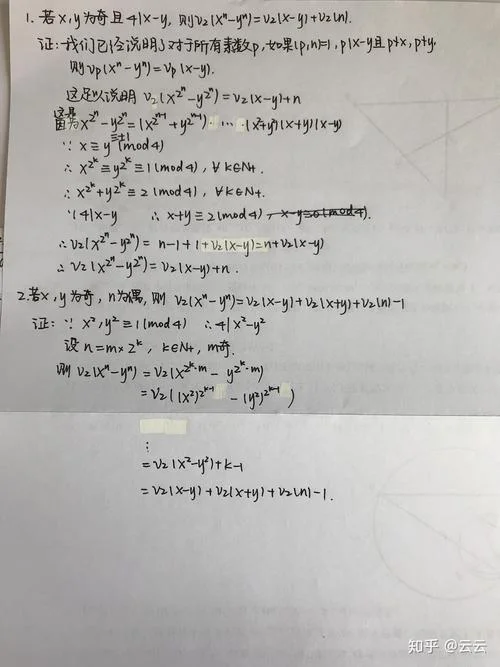 1. 若x,y为奇且4|x-y, 则ν₂(xⁿ-yⁿ)=ν₂(x-y)+ν₂(n).
证: 我们已经说明了对于所有素数p, 如果(p,n)=1, p|x-y且p∤x, p∤y.
则νp(xⁿ-yⁿ)=νp(x-y).
这足以说明 ν₂(x^{2^n}-y^{2^n})=ν₂(x-y)+n
因为x^{2^n}-y^{2^n}=(x^{2^{n-1}}+y^{2^{n-1}})·…·(x²+y²)(x+y)(x-y)
∵ x≡y≡±1(mod4)
∴ x^{2^k}≡y^{2^k}≡1(mod4), ∀k∈N₊.
∴ x^{2^k}+y^{2^k}≡2(mod4), ∀k∈N₊.
∵4|x-y ∴ x+y≡2(mod4), x-y≡0(mod4).
∴ν₂(x^{2^n}-y^{2^n})= n-1+1+ν₂(x-y)=n+ν₂(x-y)
∴ν₂(x^{2^n}-y^{2^n})=ν₂(x-y)+n.
2.若x,y为奇, n为偶, 则 ν₂(xⁿ-yⁿ)=ν₂(x-y)+ν₂(x+y)+ν₂(n)-1
证: ∵ x²,y²≡1(mod4) ∴4|x²-y²
设 n=m×2^k, k∈N₊, m奇.
则ν₂(xⁿ-yⁿ)=ν₂(x^{2^k·m}-y^{2^k·m})
=ν₂((x²)^{2^{k-1}}-(y²)^{2^{k-1}})
⋮
=ν₂(x²-y²)+k-1
=ν₂(x-y)+ν₂(x+y)+ν₂(n)-1.
知乎 @云云